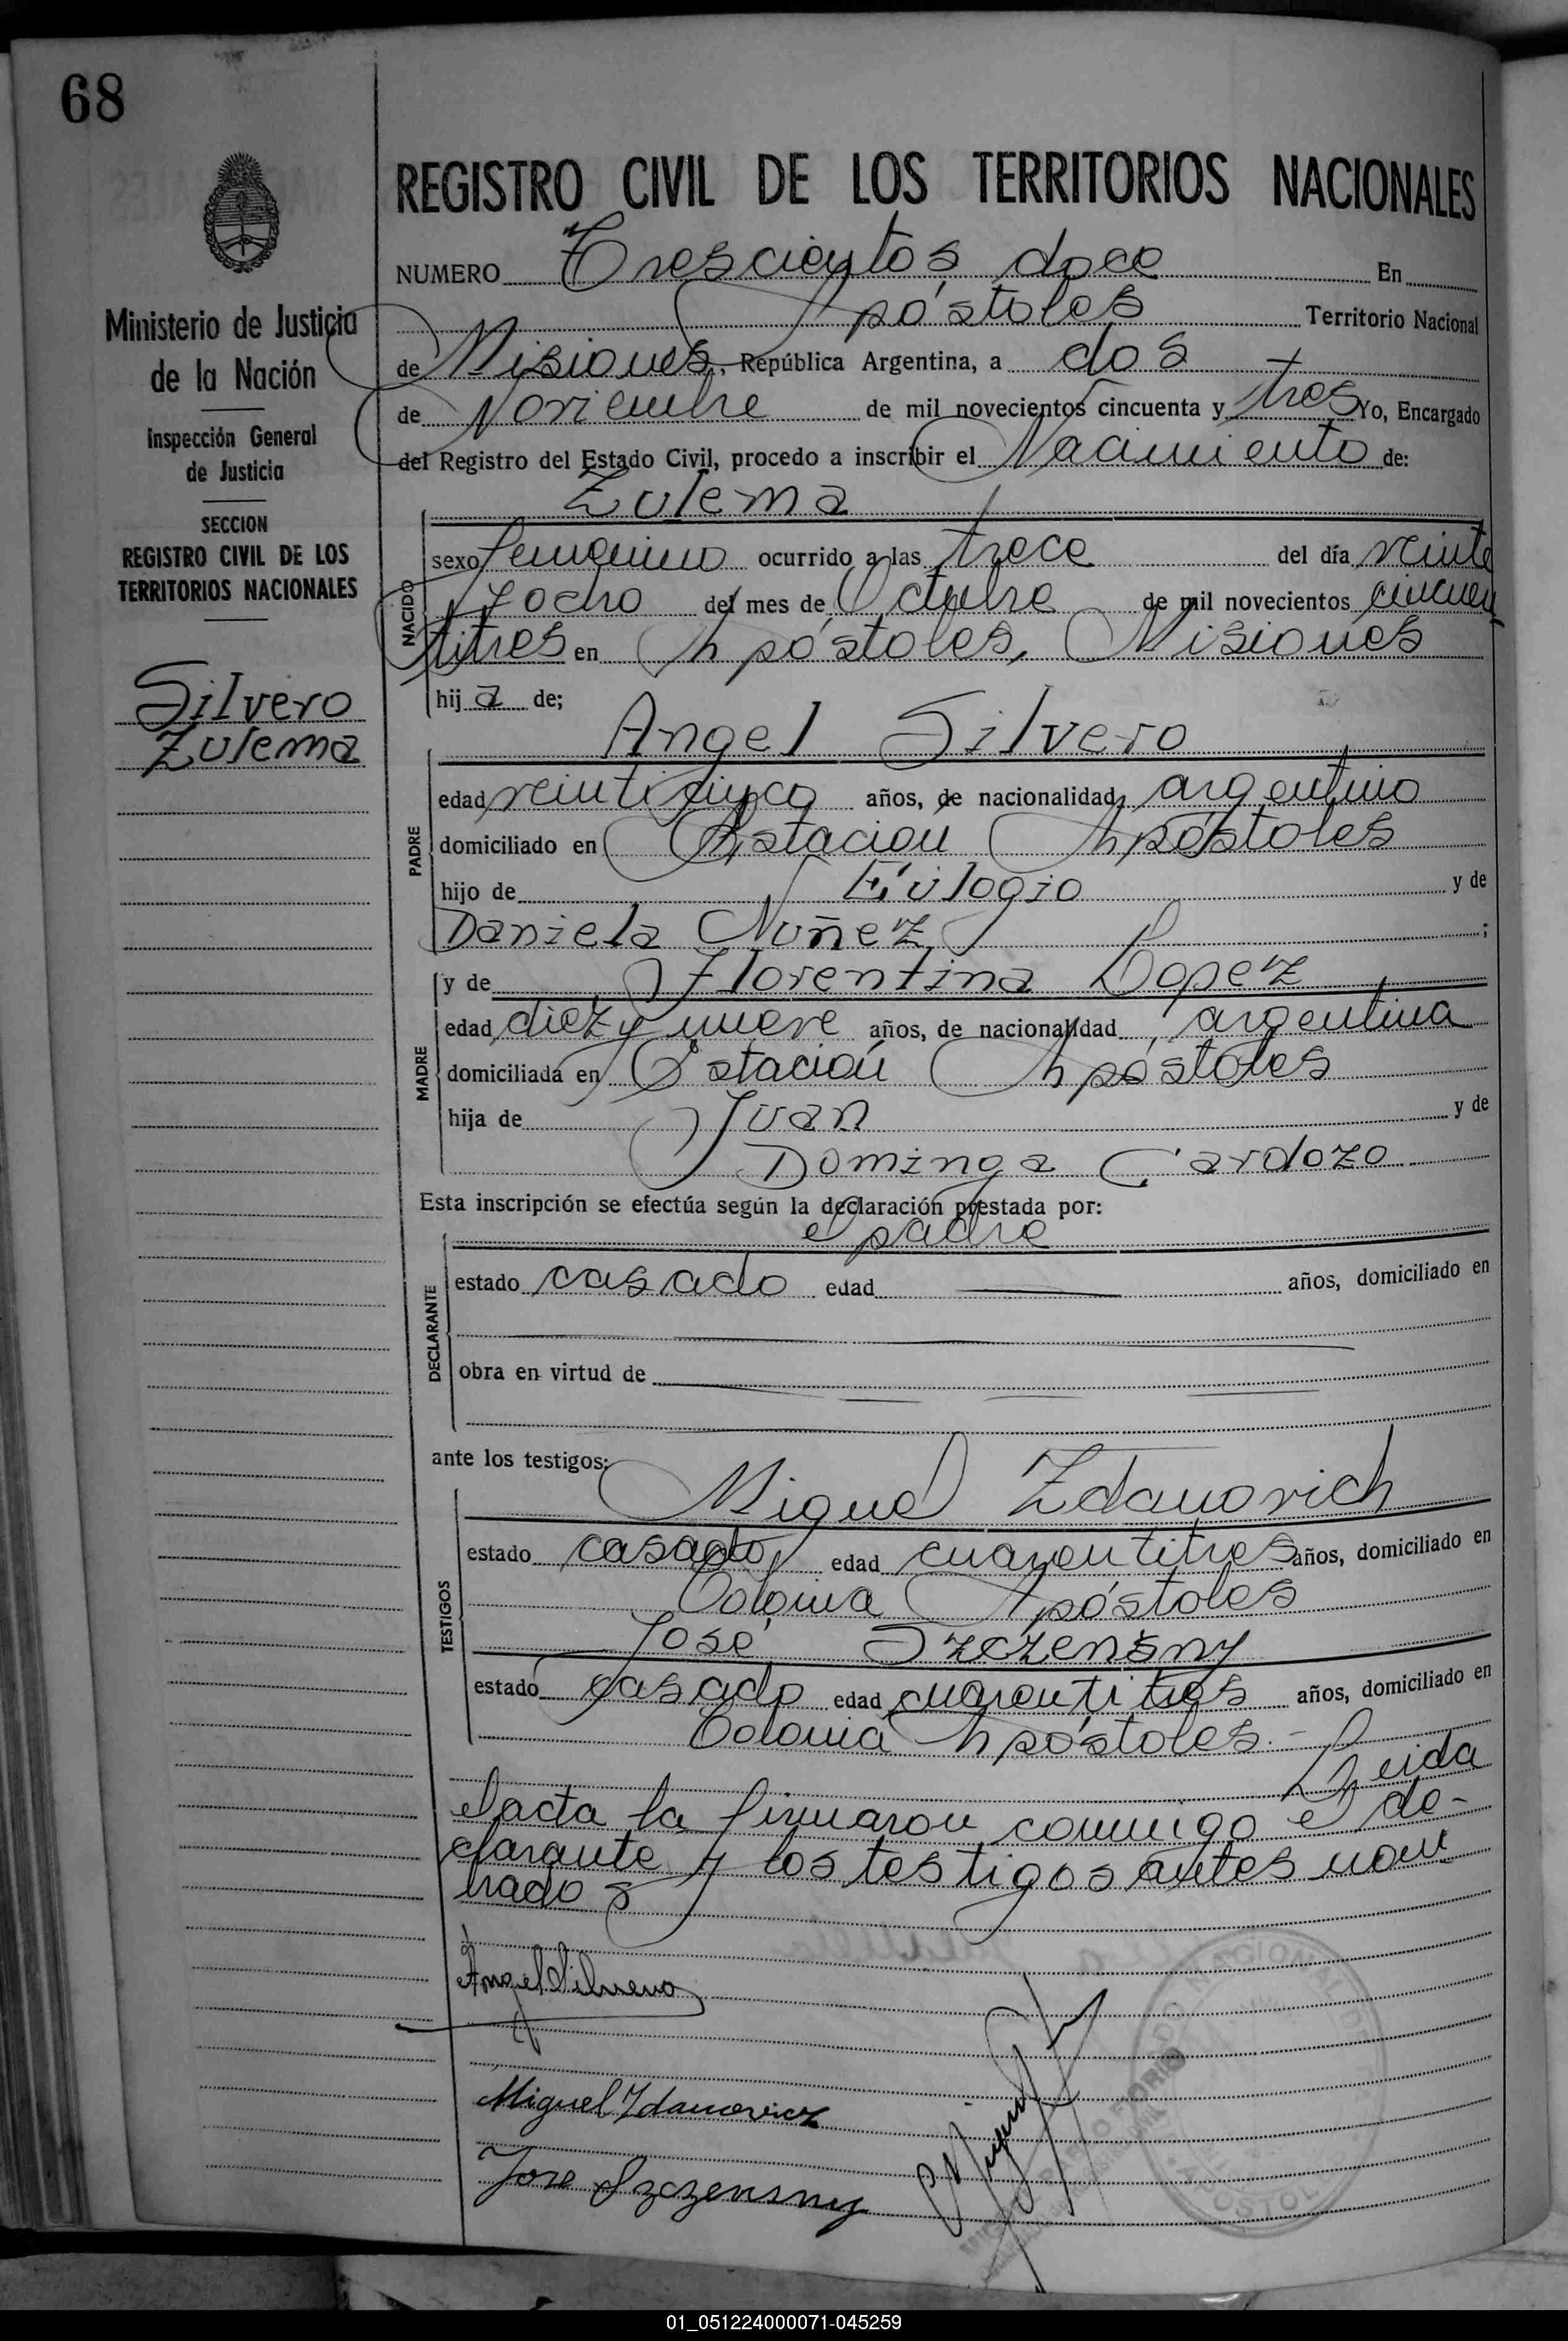 68
REGISTRO CIVIL DE LOS TERRITORIOS NACIONALES
NUMERO Trescientos doce En
Apóstoles Territorio Nacional
de Misiones, República Argentina, a dos
de Noviembre de mil novecientos cincuenta y tres Yo, Encargado
del Registro del Estado Civil, procedo a inscribir el Nacimiento de:
Zulema
NACIDO
sexo femenino ocurrido a las trece del día veinte
y ocho del mes de Octubre de mil novecientos cincuen
titres en Apóstoles, Misiones
hij a de;
Ministerio de Justicia
de la Nación
Inspección General
de Justicia
SECCION
REGISTRO CIVIL DE LOS
TERRITORIOS NACIONALES
Silvero
Zulema
Angel Silvero
PADRE
edad veinticinco años, de nacionalidad argentino
domiciliado en Estación Apóstoles
hijo de Eulogio y de
Daniela Nuñez ;
y de Florentina Lopez
MADRE
edad diez y nueve años, de nacionalidad argentina
domiciliada en Estación Apóstoles
hija de Juan y de
Dominga Cardozo
Esta inscripción se efectúa según la declaración prestada por:
el padre
DECLARANTE
estado casado edad años, domiciliado en
obra en virtud de
ante los testigos:
Miguel Zdanovich
TESTIGOS
estado casado edad cuarentitres años, domiciliado en
Colonia Apóstoles
José Szczensny
estado casado edad cuarentitres años, domiciliado en
Colonia Apóstoles.- Leida
el acta la firmaron conmigo el de-
clarante y los testigos antes nom
brados
Angel Silvero
Miguel Zdanovicz
Jose Szczensny
01_051224000071-045259